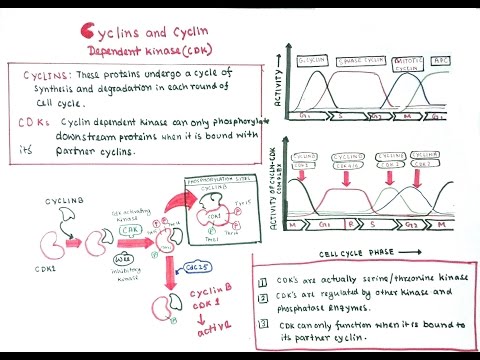 Cyclins and Cyclin
Dependent Kinase (CDK)
CYCLINS: These proteins undergo a cycle of
synthesis and degradation in each round of
cell cycle.
CDKs Cyclin dependent kinase can only phosphorylate
downstream proteins when it is bound with
it's partner cyclins.
CYCLIN B
CDK1
CDK activating
kinase
CAK
Wee
inhibitory
kinase
PHOSPHORYLATION SITES
CYCLIN B
CDK1
Tyr15
Thr14
Thr161
Cdc25
Cyclin B
CDK 1
active
ACTIVITY
G1 CYCLIN
S PHASE CYCLIN
MITOTIC CYCLIN
APC
G1
S
G2
M
G1
ACTIVITY OF CYCLIN-CDK
COMPLEX
CYCLIN D
CYCLIN E
CYCLIN B
CDK 1
M
G1
R
S
G2
M
CELL CYCLE PHASE
1 CDK's are actually serine/threonine kinase
2 CDK's are regulated by other kinase and
phosphatase enzymes.
3 CDK can only function when it is bound to
its partner cyclin.